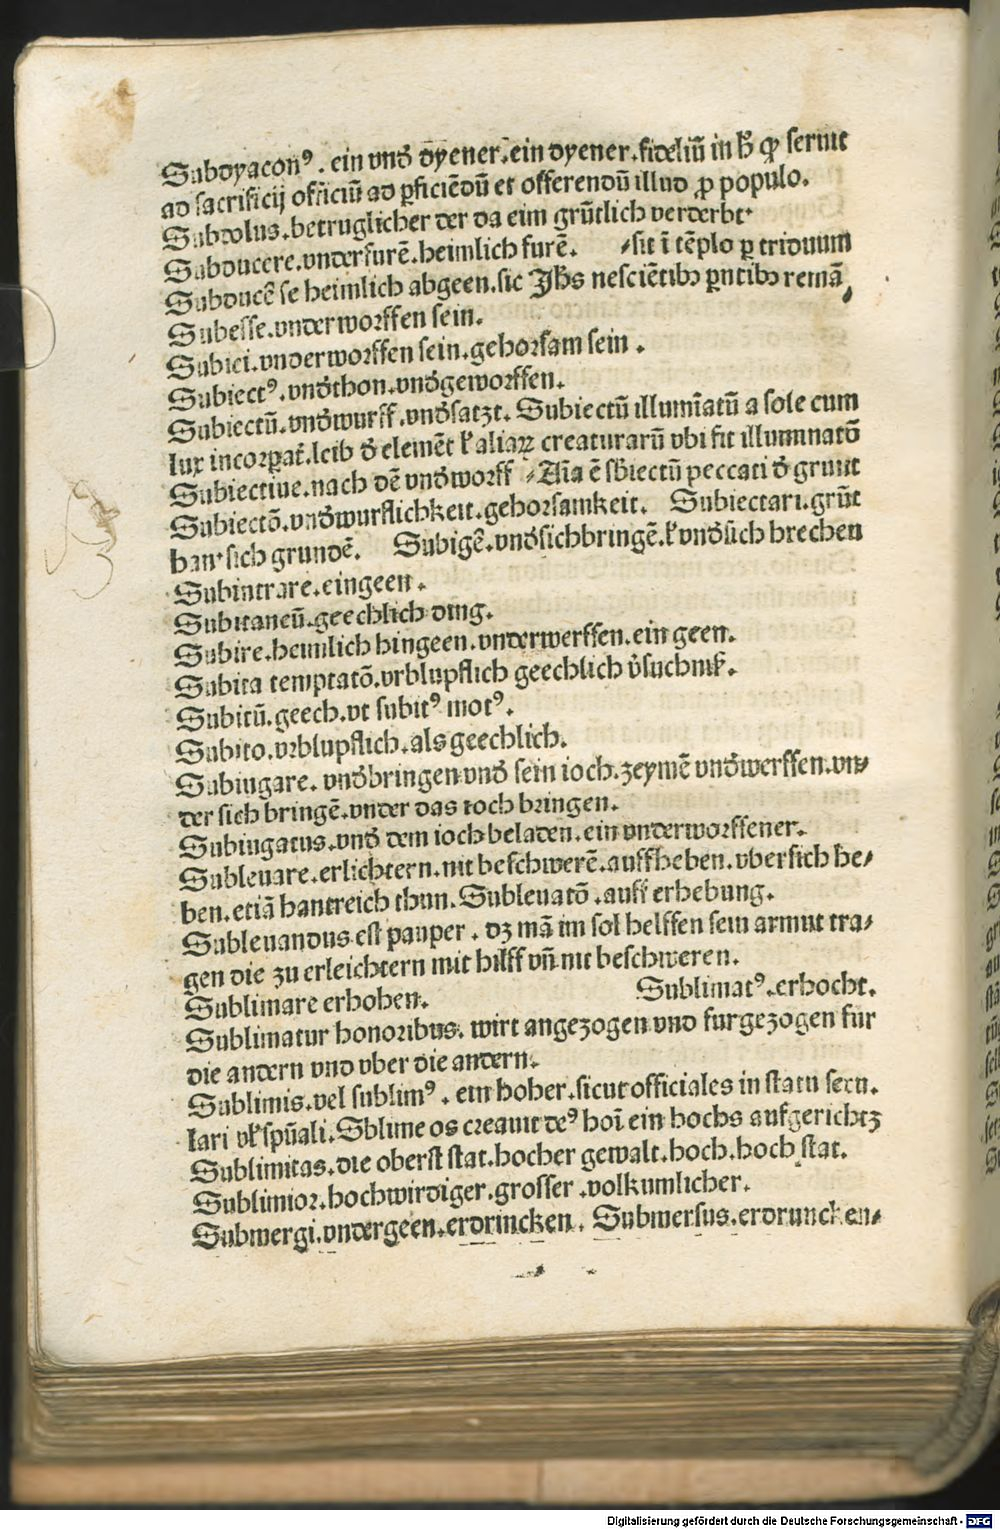 Subdyaconꝰ . ein vnd̉ dyener. ein dyener. fideliũ in hͦ ꝙ seruit
ad sacrificij officiũ ad ꝑficiẽdũ et offerendũ illud ꝓ populo.
Subdolus. betruglicher der da eim grũtlich verderbt.
Subducere. vnderfurẽ. heimlich furẽ. ⸗sit ĩ tẽplo ꝑ triduum
Subducẽ se heimlich abgeen. sic Jhs nesciẽtibꝫ pñtibꝫ remã⸗
Subesse. vnderworffen sein.
Subici. vnderworffen sein. gehorsam sein .
Subiectꝰ. vnd̉thon. vnd̉geworffen.
Subiectũ. vnd̉wurff. vnd̉satzt. Subiectũ illumĩatũ a sole cum
lux incorꝑat̃. leib d̉ elemẽt ł aliaꝝ creaturarũ vbi fit illuminatõ
Subiectiue. nach dẽ vnd̉worff ⸗Aĩa ẽ sb̃iectũ peccati d̉ grunt
Subiectõ. vnd̉wurflichkeit. gehorsamkeit. Subiectari. grũt
han. sich grundẽ. Subigẽ. vnd̉sichbringẽ. ł vnd̉sich brechen
Subintrare. eingeen .
Subitaneũ. geechlich ding.
Subire. heimlich hingeen. vnderwerffen. ein geen.
Subita temptatõ. vrblupflich geechlich v̉suchniß.
Subitũ. geech. vt subitꝰ motꝰ.
Subito. vrblupflich. als geechlich.
Subiugare. vnd̉bringen vnd̉ sein ioch. zeymẽ vnd̉werffen. vn⸗
der sich bringẽ. vnder das ioch bringen.
Subiugatus. vnd̉ dem ioch beladen. ein vnderworffener.
Subleuare. erlichtern. nit beschwerẽ. auffheben. vbersich he⸗
ben. etiã hantreich thun. Subleuatõ . auff erhebung.
Subleuandus est pauper . dz mã im sol helffen sein armut tra⸗
gen die zu erleichtern mit hilff vñ nit beschweren.
Sublimare erhohen. Sublimatꝰ. erhocht.
Sublimatur honoribus. wirt angezogen vnd furgezogen fur
die andern vnd vber die andern.
Sublimis. vel sublimꝰ . ein hoher. sicut officiales in statu secu⸗
lari vł spũali. Sblime os creauit deꝰ hoĩ ein hochs aufgerichtz
Sublimitas. die oberst stat. hocher gewalt. hoch. hoch stat.
Sublimior. hochwirdiger. grosser . volkumlicher.
Submergi. vndergeen. erdrincken. Submersus. erdruncken⸗
Digitalisierung gefördert durch die Deutsche Forschungsgemeinschaft - DFG